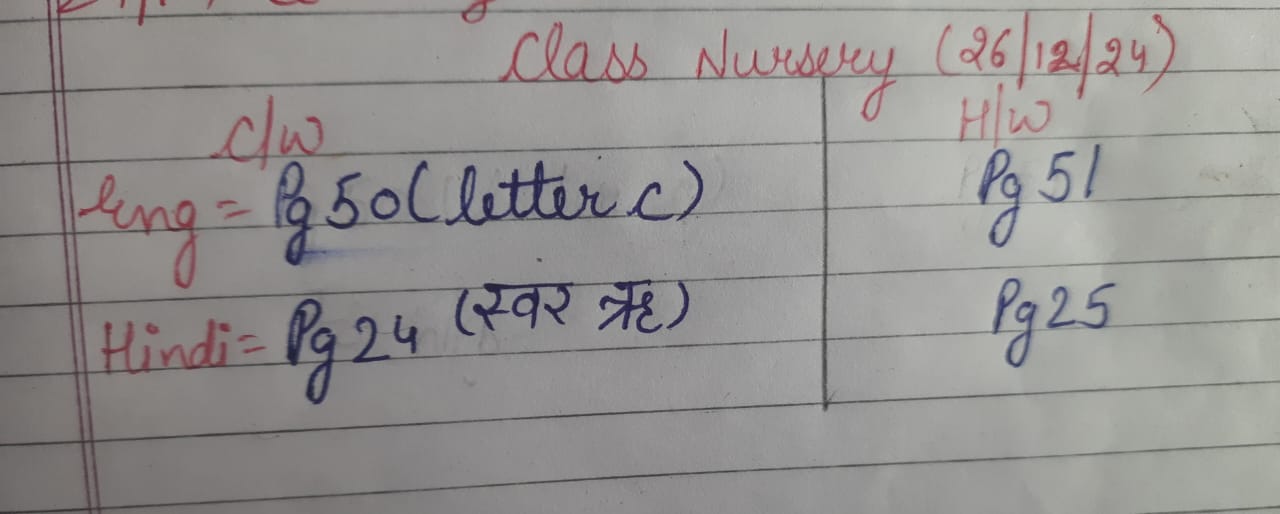 Class Nursery (26/12/24)
C/W H/W
Eng = Pg 50 (letter c) Pg 51
Hindi = Pg 24 (स्वर ऋ) Pg 25